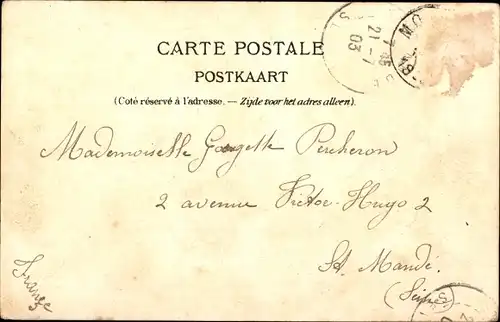 CARTE POSTALE
POSTKAART
(Coté réservé à l'adresse. — Zijde voor het adres alleen).
Mademoiselle Georgette Percheron
2 avenue Victor-Hugo 2
St Mandé.
(Seine)
France
21-7
03